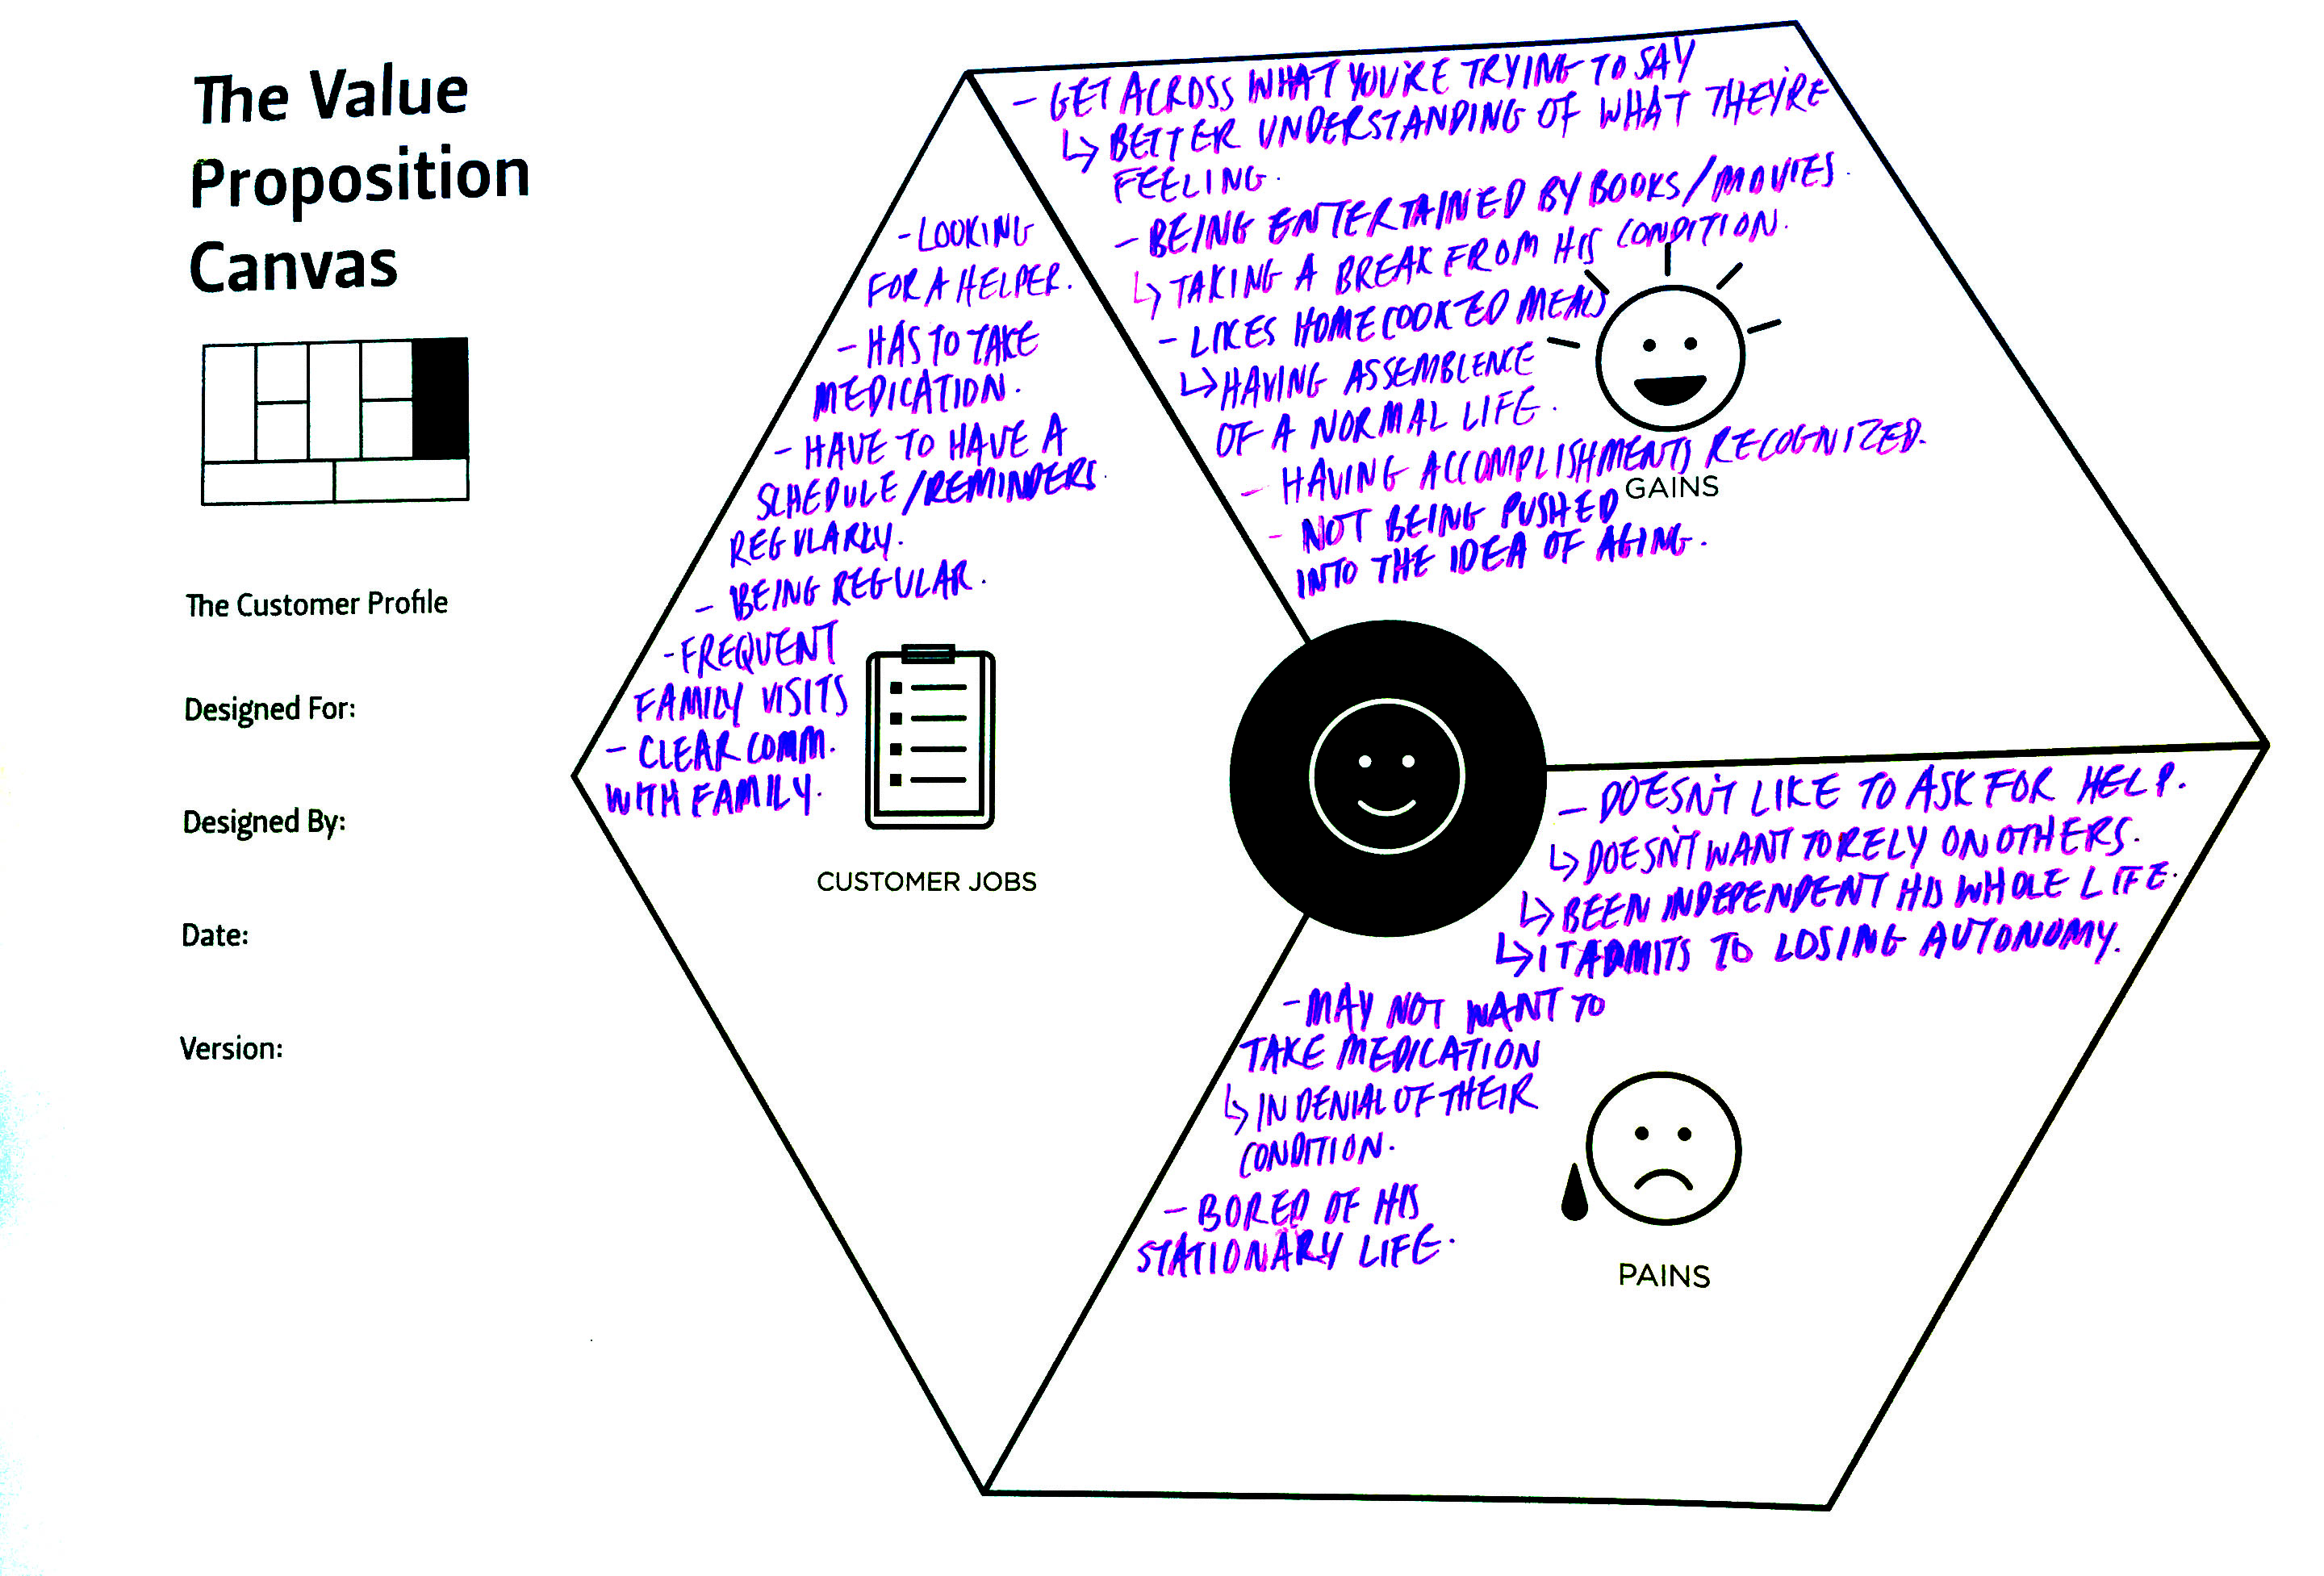 The Value
Proposition
Canvas
The Customer Profile
Designed For:
Designed By:
Date:
Version:
- LOOKING
FOR A HELPER.
- HAS TO TAKE
MEDICATION.
- HAVE TO HAVE A
SCHEDULE/REMINDERS
REGULARLY.
- BEING REGULAR.
- FREQUENT
FAMILY VISITS
- CLEAR COMM.
WITH FAMILY.
CUSTOMER JOBS
- GET ACROSS WHAT YOU'RE TRYING TO SAY
↳ BETTER UNDERSTANDING OF WHAT THEY'RE
FEELING.
- BEING ENTERTAINED BY BOOKS/MOVIES.
↳ TAKING A BREAK FROM HIS CONDITION.
- LIKES HOMECOOKED MEALS
↳ HAVING ASSEMBLENCE
OF A NORMAL LIFE.
- HAVING ACCOMPLISHMENTS RECOGNIZED.
- NOT BEING PUSHED
INTO THE IDEA OF AGING.
GAINS
- DOESN'T LIKE TO ASK FOR HELP.
↳ DOESN'T WANT TO RELY ON OTHERS.
↳ BEEN INDEPENDENT HIS WHOLE LIFE.
↳ IT ADMITS TO LOSING AUTONOMY.
- MAY NOT WANT TO
TAKE MEDICATION
↳ IN DENIAL OF THEIR
CONDITION.
- BORED OF HIS
STATIONARY LIFE.
PAINS